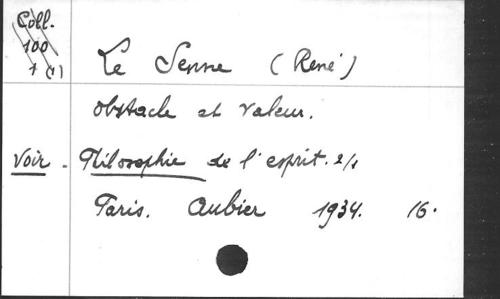 Coll.
100
1 (1)
Le Senne (René)
Obstacle et valeur.
Voir. Philosophie de l'esprit. 2/1
Paris. Aubier 1934. 16.